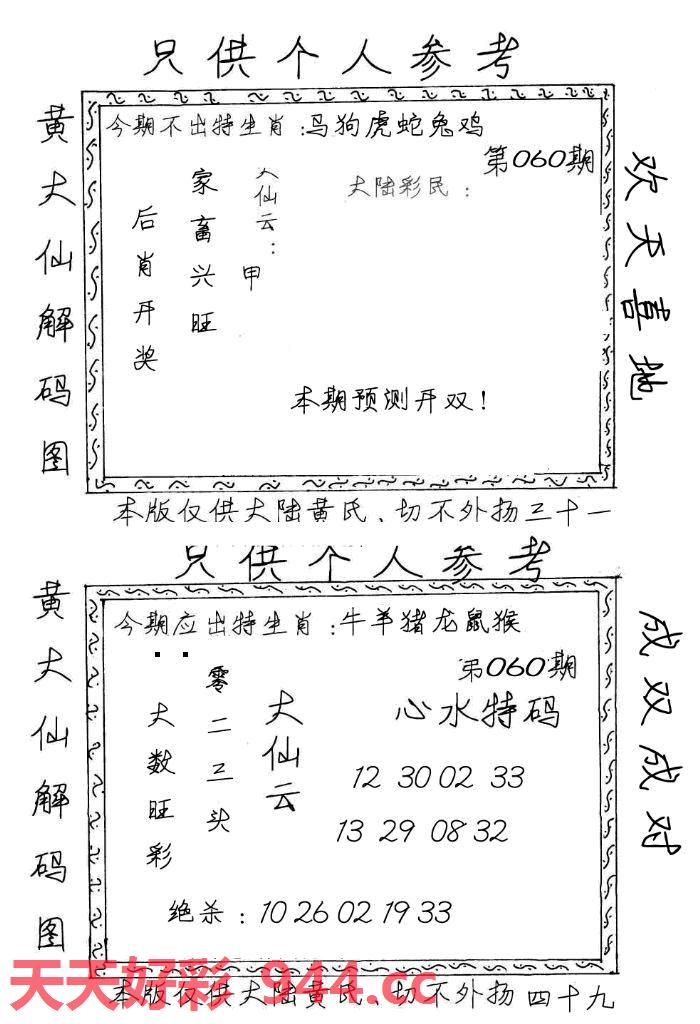 只供个人参考
黄大仙解码图
今期不出特生肖:马狗虎蛇兔鸡
第060期
大仙云:
甲
家畜兴旺
后肖开奖
大陆彩民:
本期预测开双!
欢天喜地
本版仅供大陆黄氏、切不外扬三十一
只供个人参考
黄大仙解码图
今期应出特生肖:牛羊猪龙鼠猴
第060期
大仙云
零二三头
大数旺彩
心水特码
12 30 02 33
13 29 08 32
绝杀:10 26 02 19 33
成双成对
天天好彩 944.cc
本版仅供大陆黄氏、切不外扬四十九